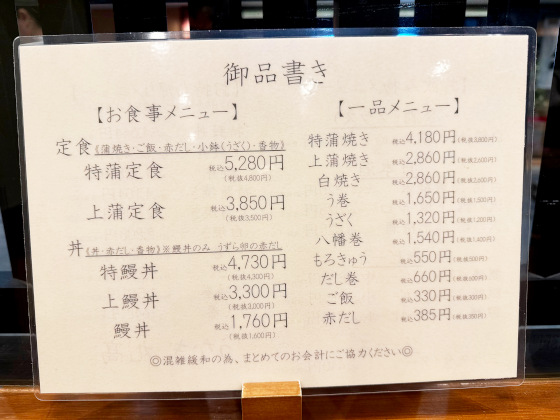 御品書き
【お食事メニュー】
定食《蒲焼き・ご飯・赤だし・小鉢(うざく)・香物》
特蒲定食 税込5,280円
(税抜4,800円)
上蒲定食 税込3,850円
(税抜3,500円)
丼《丼・赤だし・香物》※鰻丼のみ うずら卵の赤だし
特鰻丼 税込4,730円
(税抜4,300円)
上鰻丼 税込3,300円
(税抜3,000円)
鰻丼 税込1,760円
(税抜1,600円)
【一品メニュー】
特蒲焼き 税込4,180円(税抜3,800円)
上蒲焼き 税込2,860円(税抜2,600円)
白焼き 税込2,860円(税抜2,600円)
う巻 税込1,650円(税抜1,500円)
うざく 税込1,320円(税抜1,200円)
八幡巻 税込1,540円(税抜1,400円)
もろきゅう 税込550円(税抜500円)
だし巻 税込660円(税抜600円)
ご飯 税込330円(税抜300円)
赤だし 税込385円(税抜350円)
◎混雑緩和の為、まとめてのお会計にご協力ください◎